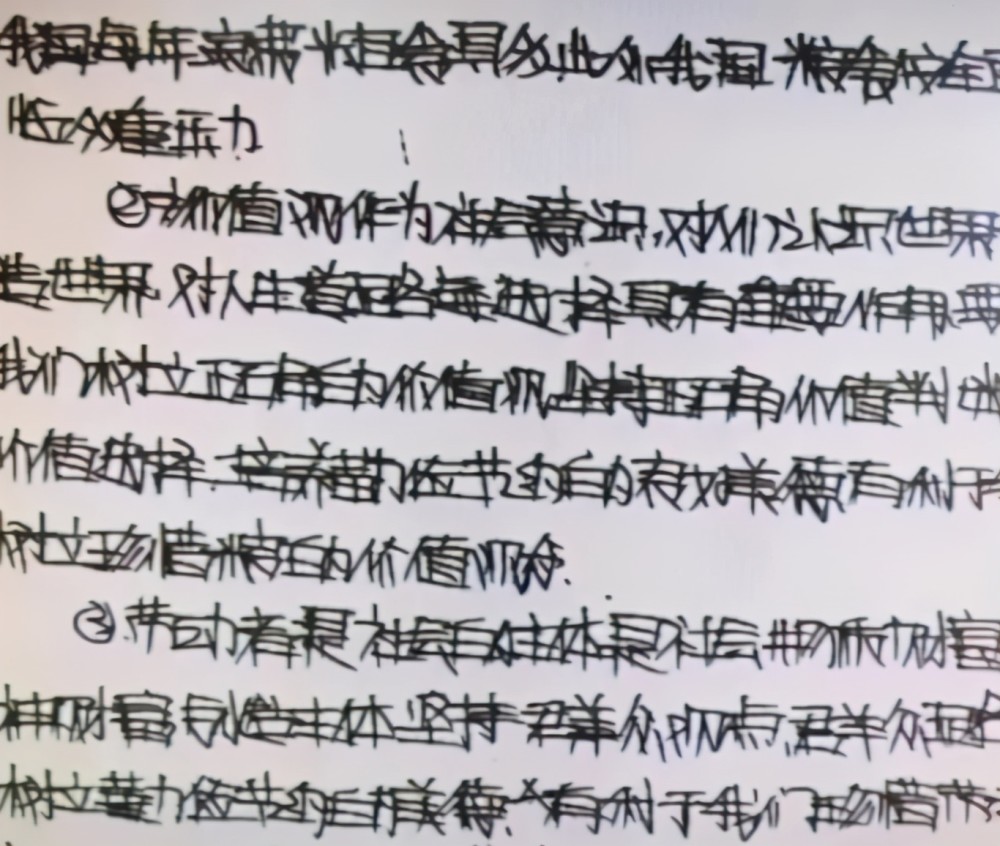 我国每年浪费粮食具多此外我国粮食安全
临众重压力
②价值观作为社会意识,对人们认识世界
造世界对人生道路选择具有重要作用要
我们树立正确的价值观坚持正确价值判
价值选择.培养勤俭节约的美德有利于
树立珍惜粮食的价值观念.
③劳动者是社会的主体是社会物质财富
神财富创造主体坚持群众观点,群众
树立勤俭节约的美德.有利于我们珍惜劳